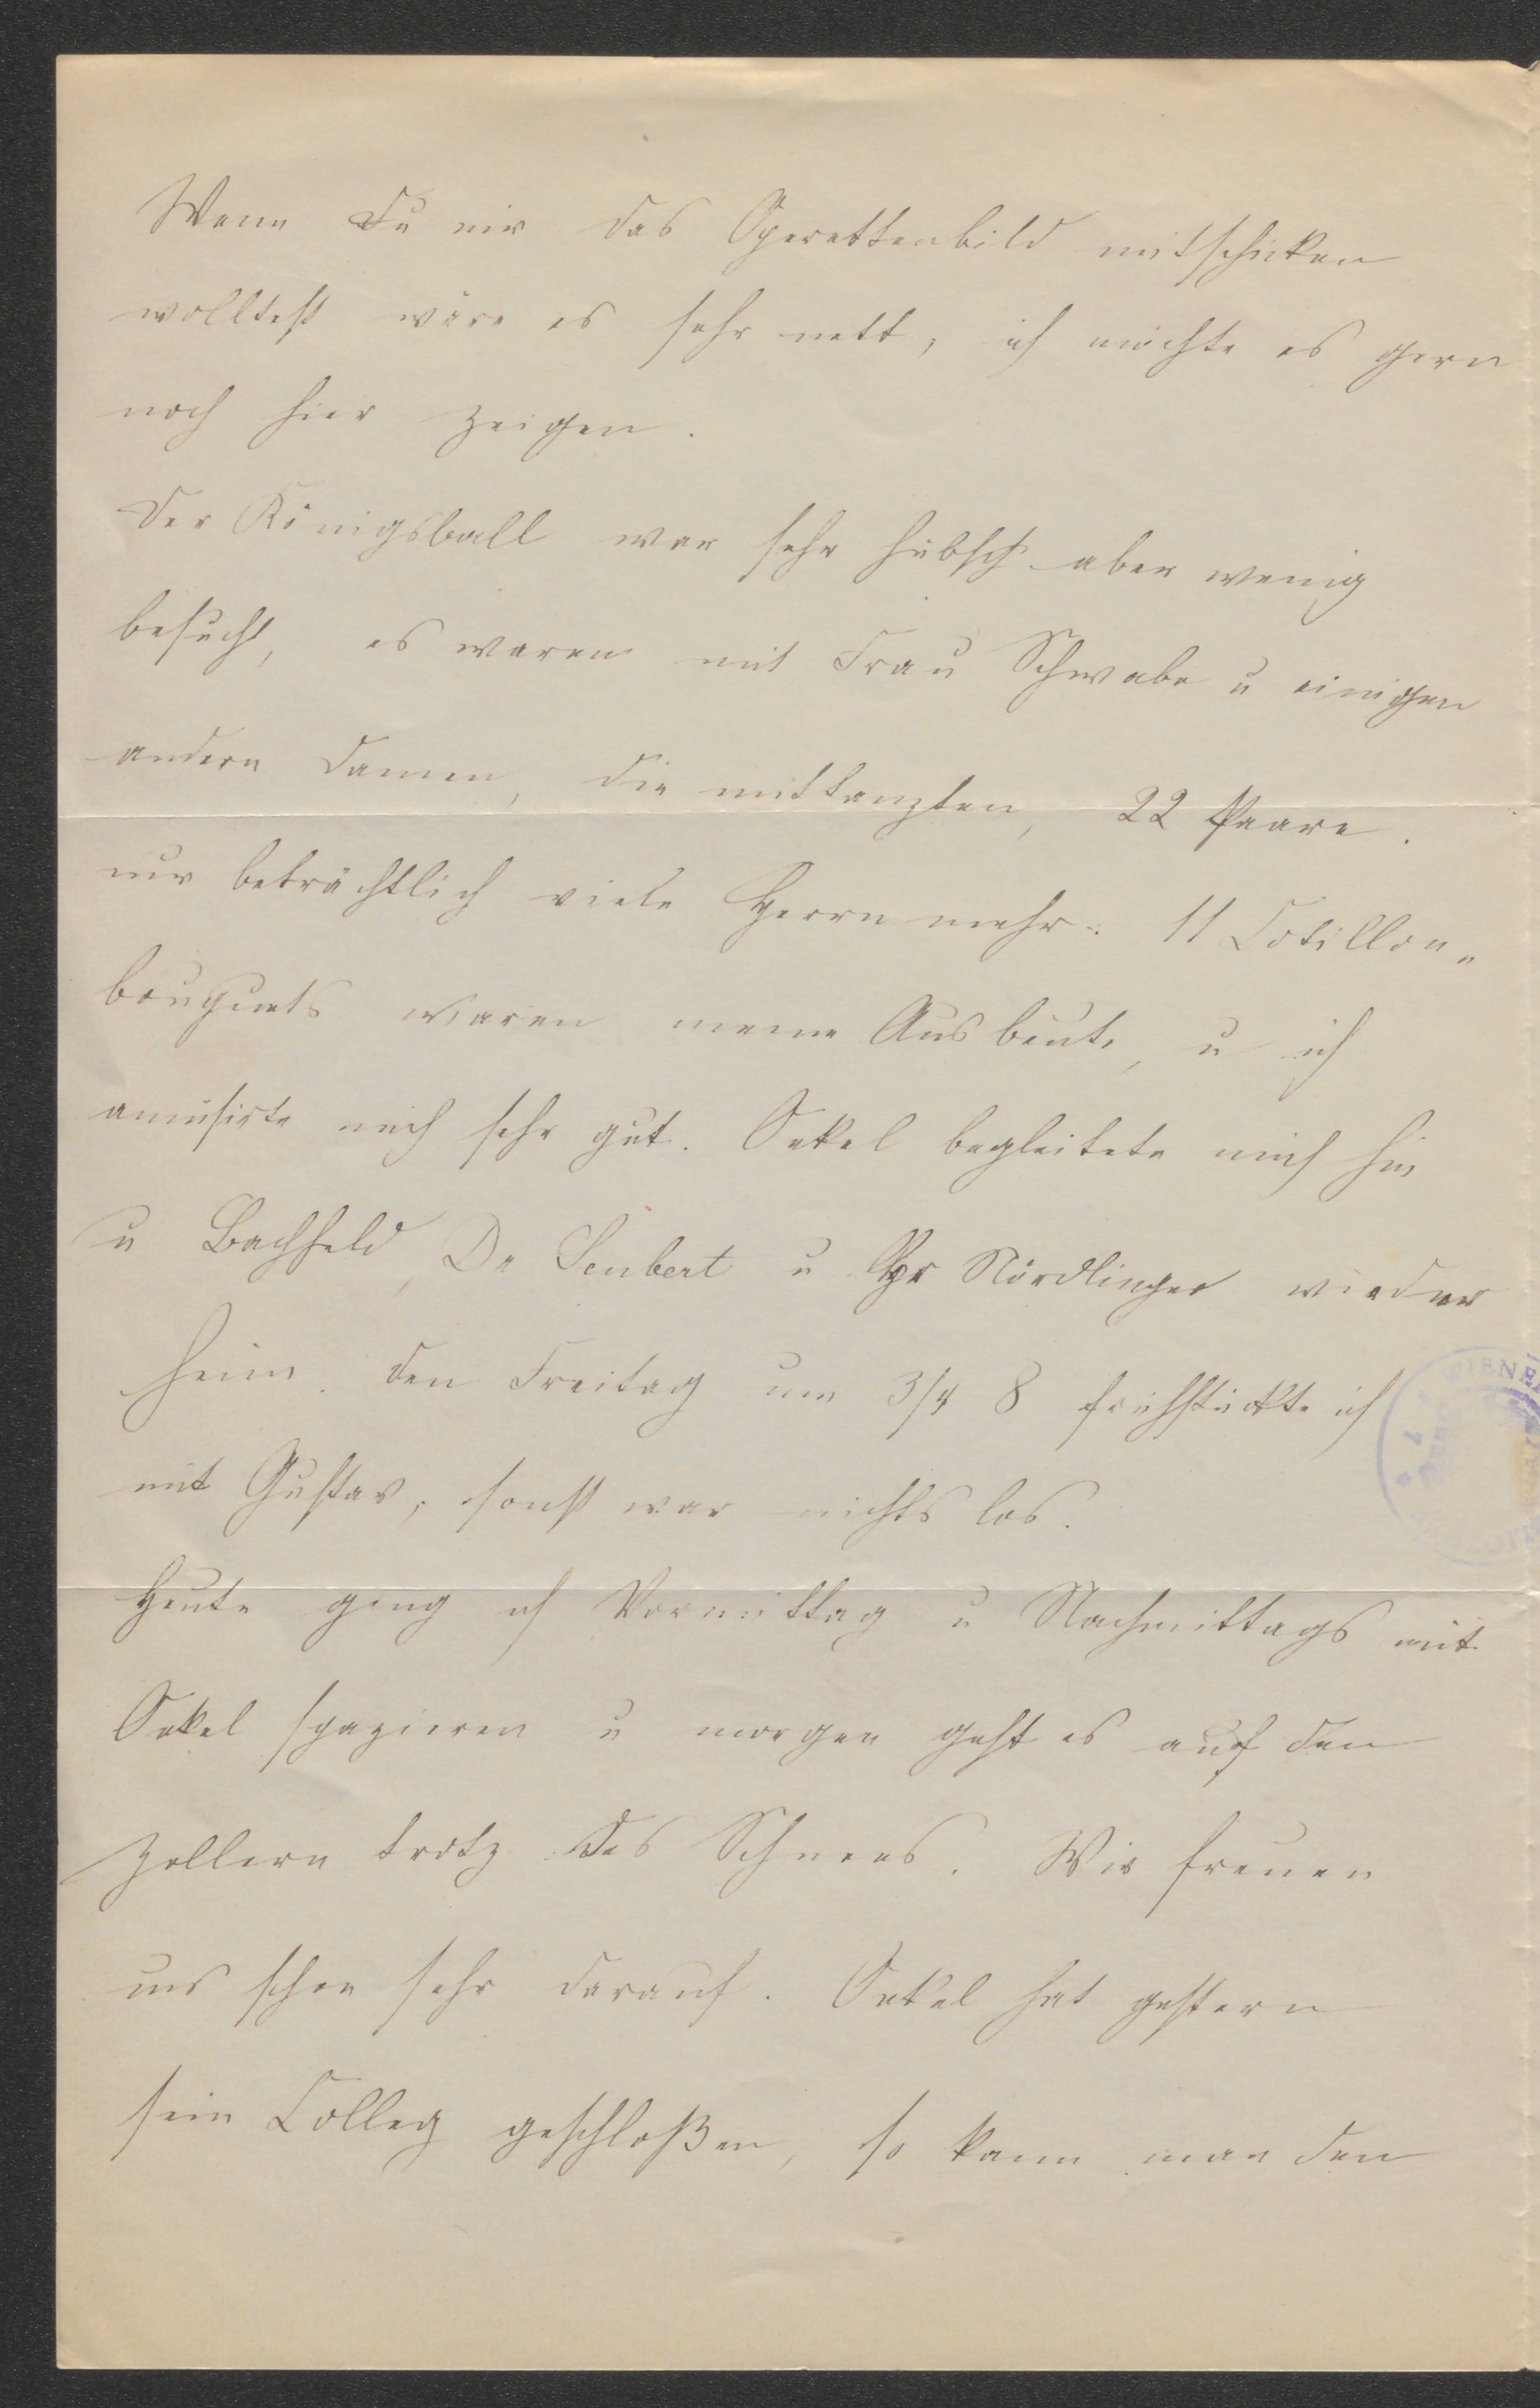 Wenn Du mir das Operettenbild mitschicken
wolltest wäre es sehr nett, ich möchte es gern
noch hier zeigen.
Der Königsball war sehr hübsch aber wenig
besucht, es waren mit Frau Schwabe u einigen
andern Damen, die mittanzten, 22 Paare.
nur beträchtlich viele Herrn mehr. 11 Cotillon„
bouquets waren meine Ausbeute, u ich
amüsirte mich sehr gut. Onkel begleitete mich hin
u Bachfeld, Dr Seubert u Hr Nördlinger wieder
heim. Den Freitag um 3/4 8 frühstückte ich
mit Gustav, sonst war nichts los.
Heute ging ich Vormittag u Nachmittags mit
Onkel spazieren u morgen geht es auf den
Zollern trotz des Schnees. Wir freuen
uns schon sehr darauf. Onkel hat gestern
sein Colleg geschloßen, so kann man den
WIENE